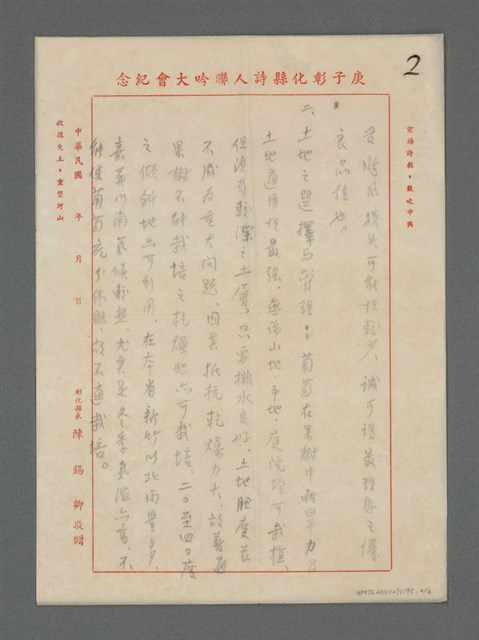 庚子彰化縣詩人聯吟大會紀念
2
宏揚詩教，鼓吹中興
受颱風損失可能極輕少，誠可謂最理想之優
良品種也。
二、土地之選擇與管理：葡萄在果樹中耐旱力及
土地適用性最強，無論山地、平地、庭院均可栽植、
但須有較深之土層，只要排水良好，土地肥度並
不成為重大問題、因其抵抗乾燥力大、故普通
果樹不能栽培之乾燥地亦可栽培，二〇至四〇度
之傾斜地亦可利用、在本省新竹以北雨量多、
嘉義以南氣候較熱、尤其是冬季氣溫亦高、不
能使葡萄充分休眠、故不適栽培。
中華民國 年 月 日 彰化縣長 陳錫卿敬贈
收復失土，重整河山